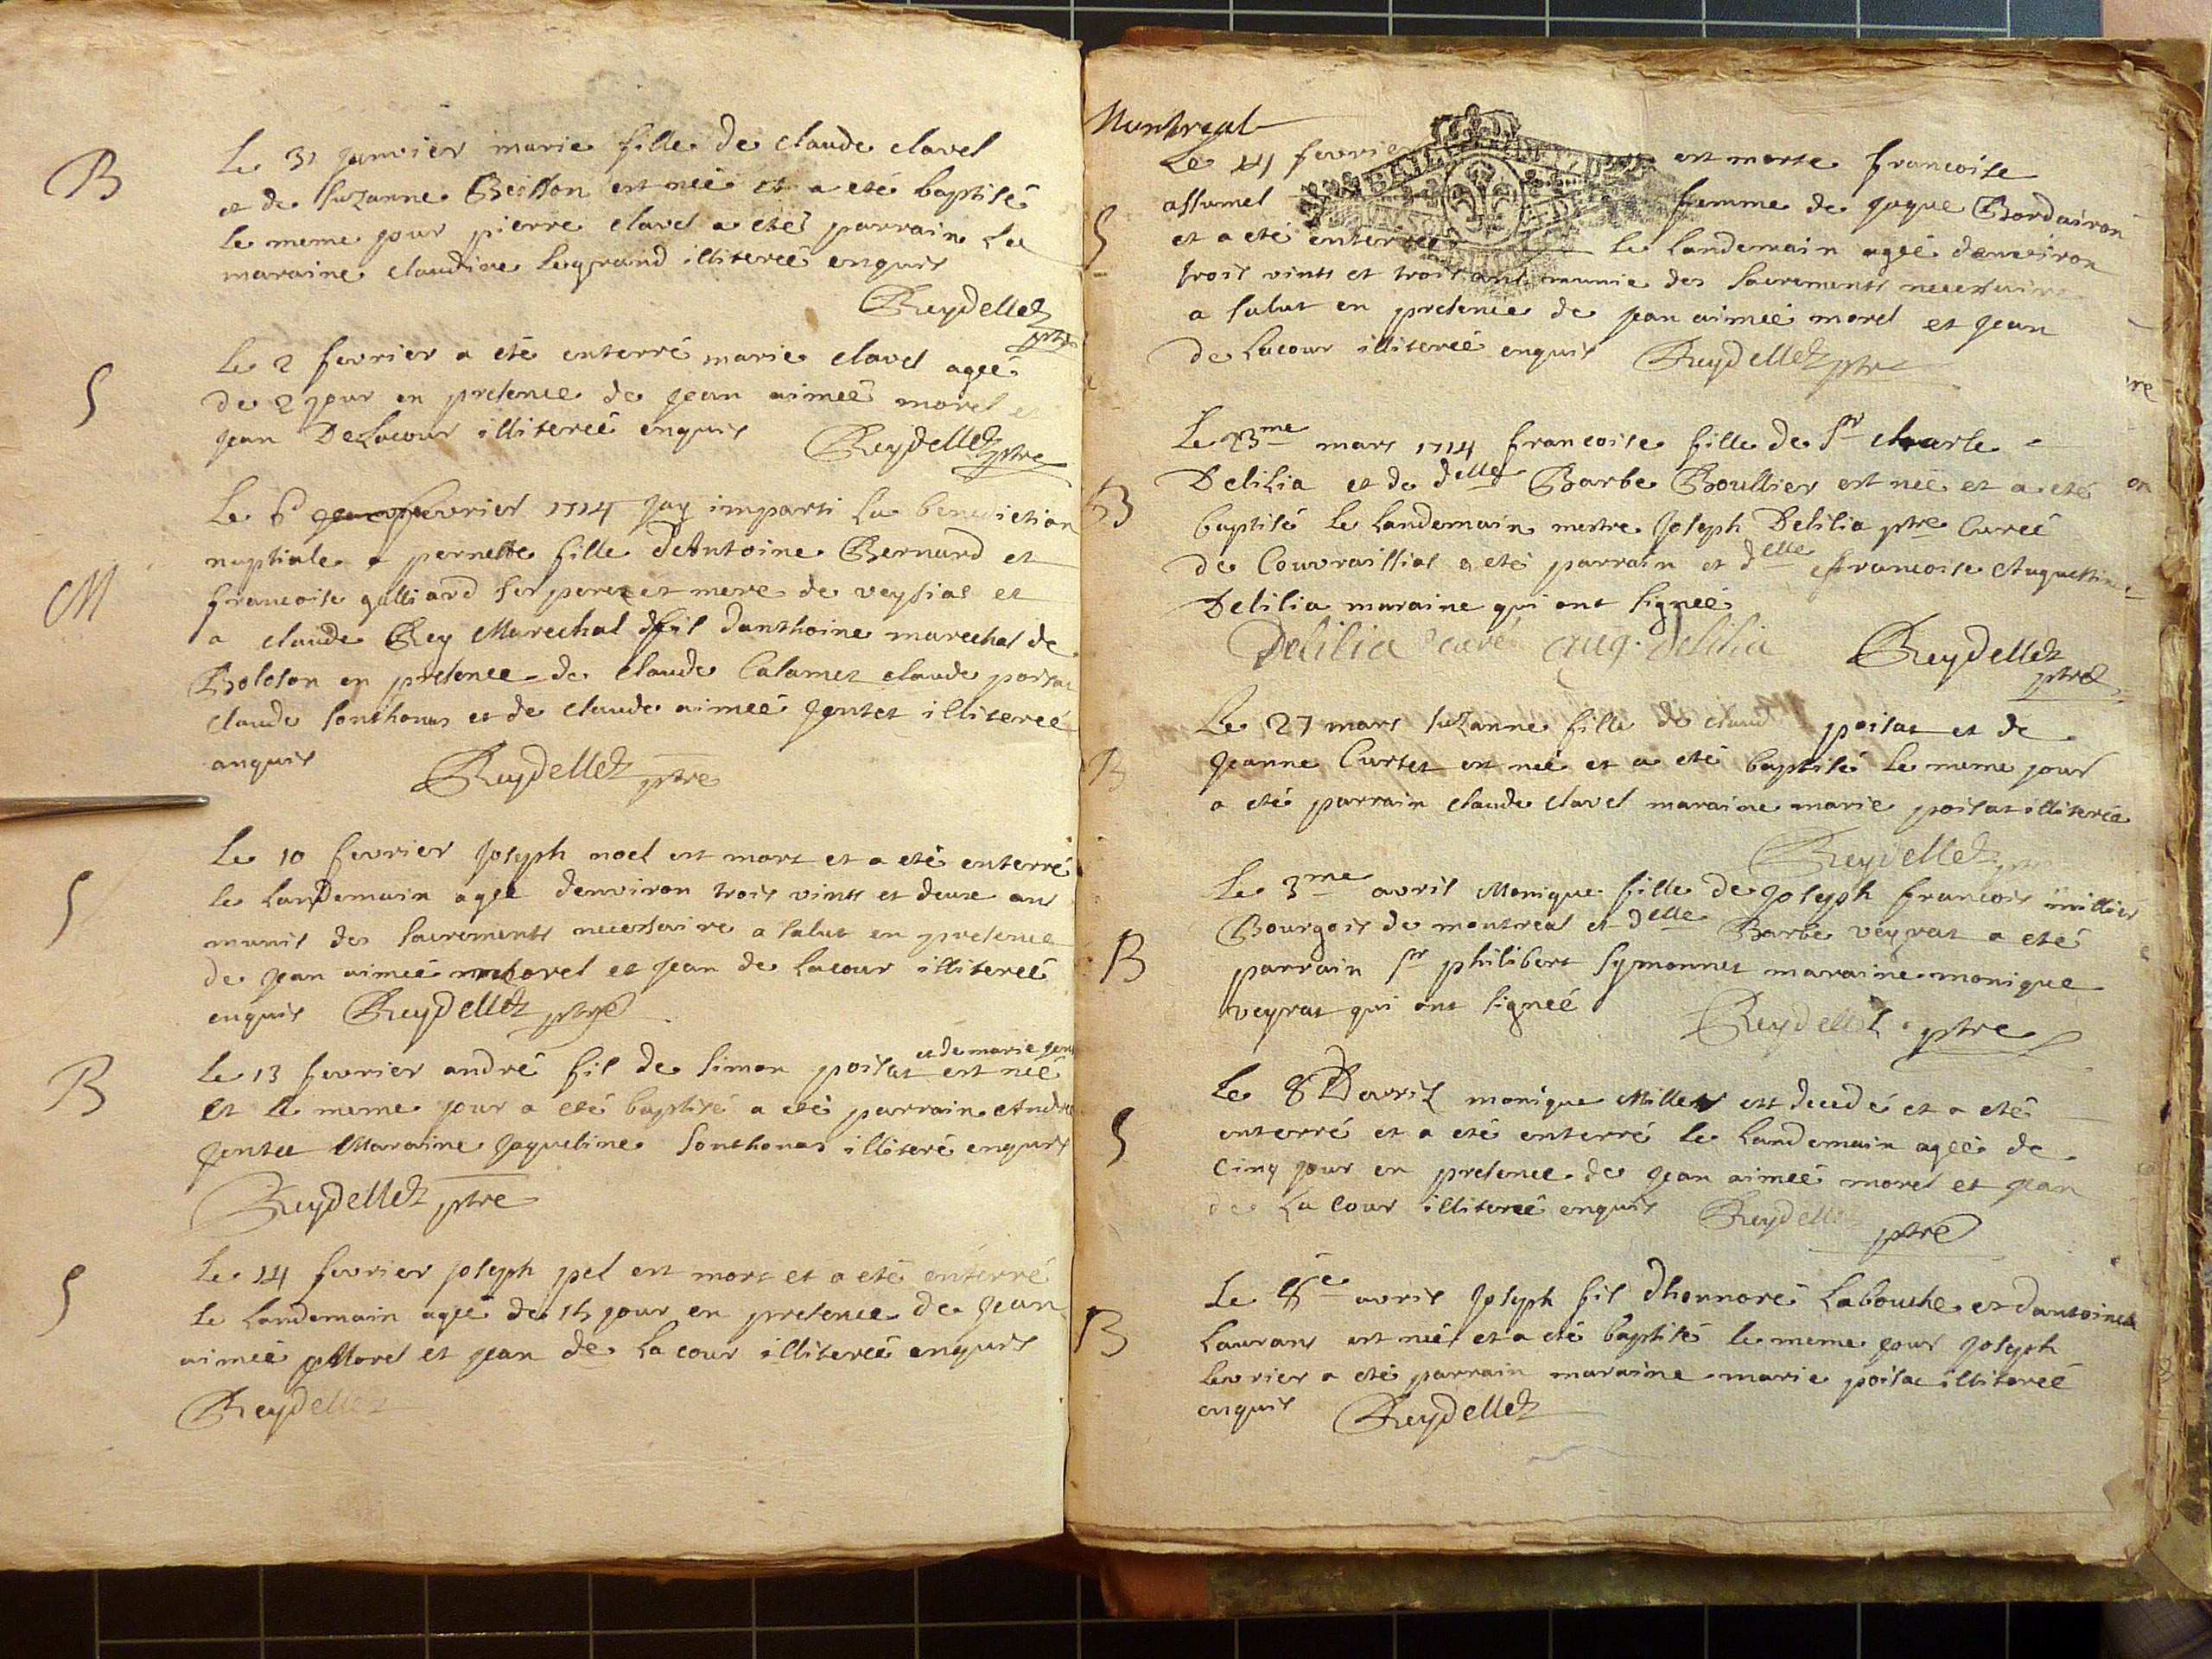 B
Le 31 janvier marie fille de claude clavel
et de suzanne Beisson est neé et a eté baptisé
le meme jour pierre clavel a eté parrain la
maraine claudine legrand illitereé enquis
Reydellet ptre
S
Le 2 fevrier a eté enterré marie clavel ageé
de 2 jour en presence de jean aimeé morel et
jean DeLacour illitereé enquis Reydellet ptre
M
Le 6 fevrier 1714 jay imparti La benediction
nuptiale a pernette fille deAntoine Bernard et
francoise galliard ses peres et mere de veysiat et
a claude Rey Marechal fil danthoine marechal de
Boloson en presence de claude Calamet claude poisat
claude sonthonas et de claude aimeé jentet illitereé
anquis Reydellet ptre
S
Le 10 fevrier joseph noel est mort et a eté enterré
le lanDemain ageé denviron trois vints et deux ans
munis des sacrements necessaire a salut en presence
de jean aimeé morel et jean de Lacour illitereé
enquis Reydellet ptre
B
et de marie
Le 13 fevrier andré fil de simon poisat est neé
et le meme jour a eté baptisé a eté parrain André
jentet Maraine jaqueline sonthonas illiteré enquis
Reydellet ptre
S
Le 14 fevrier joseph pel est mort et a eté enterré
le Landemain ageé de 15 jour en presence de jean
aimeé Morel et jean de La cour illitereé enquis
Reydellet
Montreal
Le 14 fevrier est morte francoise
S
assumel femme de jaque Bordairon
et a eté enterreé le landemain ageé denviron
trois vints et trois ans munie des sacrements necessaire
a salut en presence de jean aimeé morel et jean
de Lacour illitereé enquis Reydellet ptre
B
Le 23me mars 1714 francoise fille de Sr charle
Delilia et de delle Barbe Boullier est neé et a eté
baptisé le landemain mestre joseph Delilia ptre Cureé
de Couvraissiat a eté parrain et delle francoise Augustine
Delilia maraine qui ont signeé
Delilia curé aug. delilia Reydellet
ptre
B
Le 27 mars suzanne fille de claud poisat et de
jeanne Curtet est neé et a eté baptisé le meme jour
a eté parrain claude clavel maraine marie poisat illitereé
Reydellet
B
Le 3me avril Monique fille de joseph francois millier
Bourgois de montreal et delle Barbe veyrat a eté
parrain sr philibert symonnet maraine monique
veyrat qui ont signeé Reydellet ptre
S
Le 8 Davril monique Millier est decedé et a eté
enterré et a eté enterré le landemain ageé de
cinq jour en presence de jean aimeé morel et jean
de La cour illitereé enquis Reydellet
ptre
B
Le 8e avril joseph fil dhonnoré Labouche et dantoinet
Laurans est neé et a eté baptisé le meme jour joseph
Levrier a eté parrain maraine marie poisat illitereé
enquis Reydellet